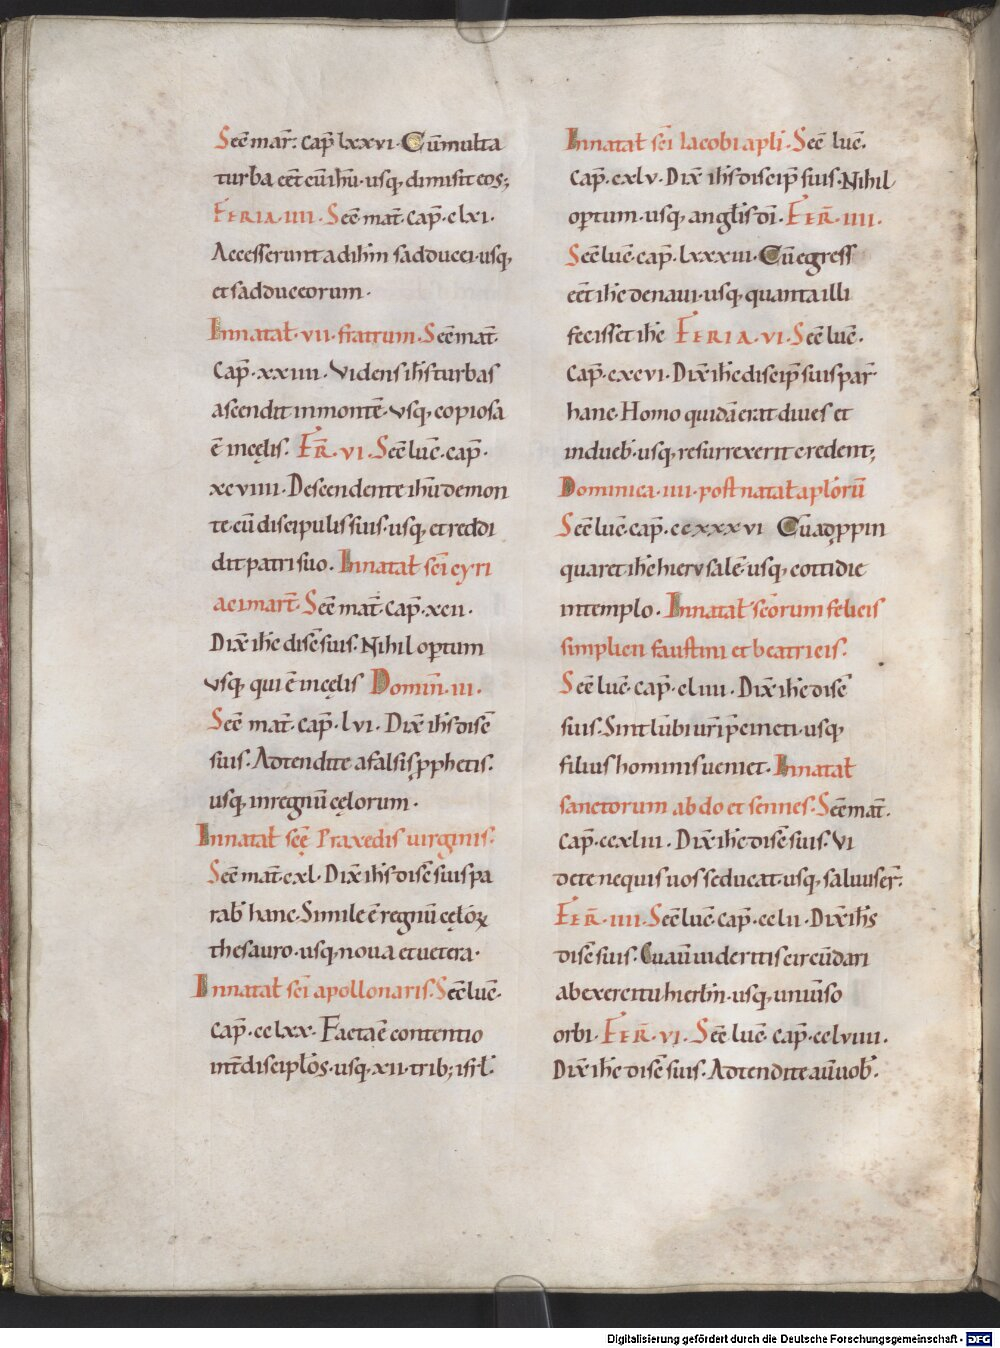 Scd̄ mar̄. cap̄ lxxvi. Cū multa
turba eēt cū ih̄u. usq; dimisit eos;
FERIA. IIII. Scd̄ mat̄. cap̄. clxi.
Accesserunt ad ih̄m sadducei. usq;
et sadduceorum.
In natal̄. vii. fratrum. Scd̄ mat̄.
cap̄. xxiiii. Videns ih̄s turbas
ascendit in montē. usq; copiosa
ē in cęlis. FER̄. VI. Scd̄ luc̄. cap̄.
xcviiii. Descendente ih̄u de mon
te. cū discipulis suis. usq; et reddi
dit patri suo. In natal̄ sc̄i cyri
aci mart̄. Scd̄ mat̄. cap̄. xcii.
Dix̄ ih̄c disc̄ suis. Nihil optum
usq; qui ē in cęlis Domin̄. iii.
Scd̄ mat̄. cap̄. lvi. Dix̄ ih̄s disc̄
suis. Adtendite a falsis p̄phetis.
usq; in regnū cęlorum.
In natal̄ sc̄ę Praxedis virginis.
Scd̄ mat̄. cxl. Dix̄ ih̄s disc̄ suis pa
rab̄ hanc. Simile ē regnū cęlōꝝ
thesauro. usq; nova et vetera.
In natal̄ sc̄i apollonaris. Scd̄ luc̄.
cap̄. cclxx. Facta ē contentio
int̄ discipl̄os. usq; xii. trib; isrl̄.
In natal̄ sc̄i Iacobi apl̄i. Scd̄ luc̄.
cap̄. cxlv. Dix̄ ih̄s discip̄ suis. Nihil
optum. usq; anglis dī. FER̄. IIII.
Scd̄ luc̄. cap̄. lxxxiii. Cū egress
eēt ih̄c de navi. usq; quanta illi
fecisset ih̄c FERIA. VI. Scd̄ luc̄.
cap̄. cxcvi. Dix̄ ih̄c discip̄ suis par̄
hanc. Homo quidā erat dives et
indueb̄. usq; resurrexerit credent;
Dominica. iiii. post natal̄ apl̄orū
Scd̄ luc̄. cap̄. ccxxxvi Cū adp̄pin
quaret ih̄c hierusalē. usq; cottidie
in templo. In natal̄ sc̄orum felicis
simplicii faustini et beatricis.
Scd̄ luc̄. cap̄. cliiii. Dix̄ ih̄c disc̄
suis. Sint lūbi ur̄i p̄cincti. usq;
filius hominis veniet. In natal̄
sanctorum abdo et sennes. Scd̄ mat̄.
cap̄. ccxliii. Dix̄ ih̄c disc̄ suis. Vi
dete ne quis vos seducat. usq; salvus er̄.
FER̄. IIII. Scd̄ luc̄. cap̄. cclii. Dix̄ ih̄s
disc̄ suis. Cū aū videritis circūdari
ab exercitu hierl̄m. usq; univ̄so
orbi. FER̄. VI. Scd̄ luc̄. cap̄. cclviiii.
Dix̄ ih̄c disc̄ suis. Adtendite aū vob̄.
Digitalisierung gefördert durch die Deutsche Forschungsgemeinschaft - DFG